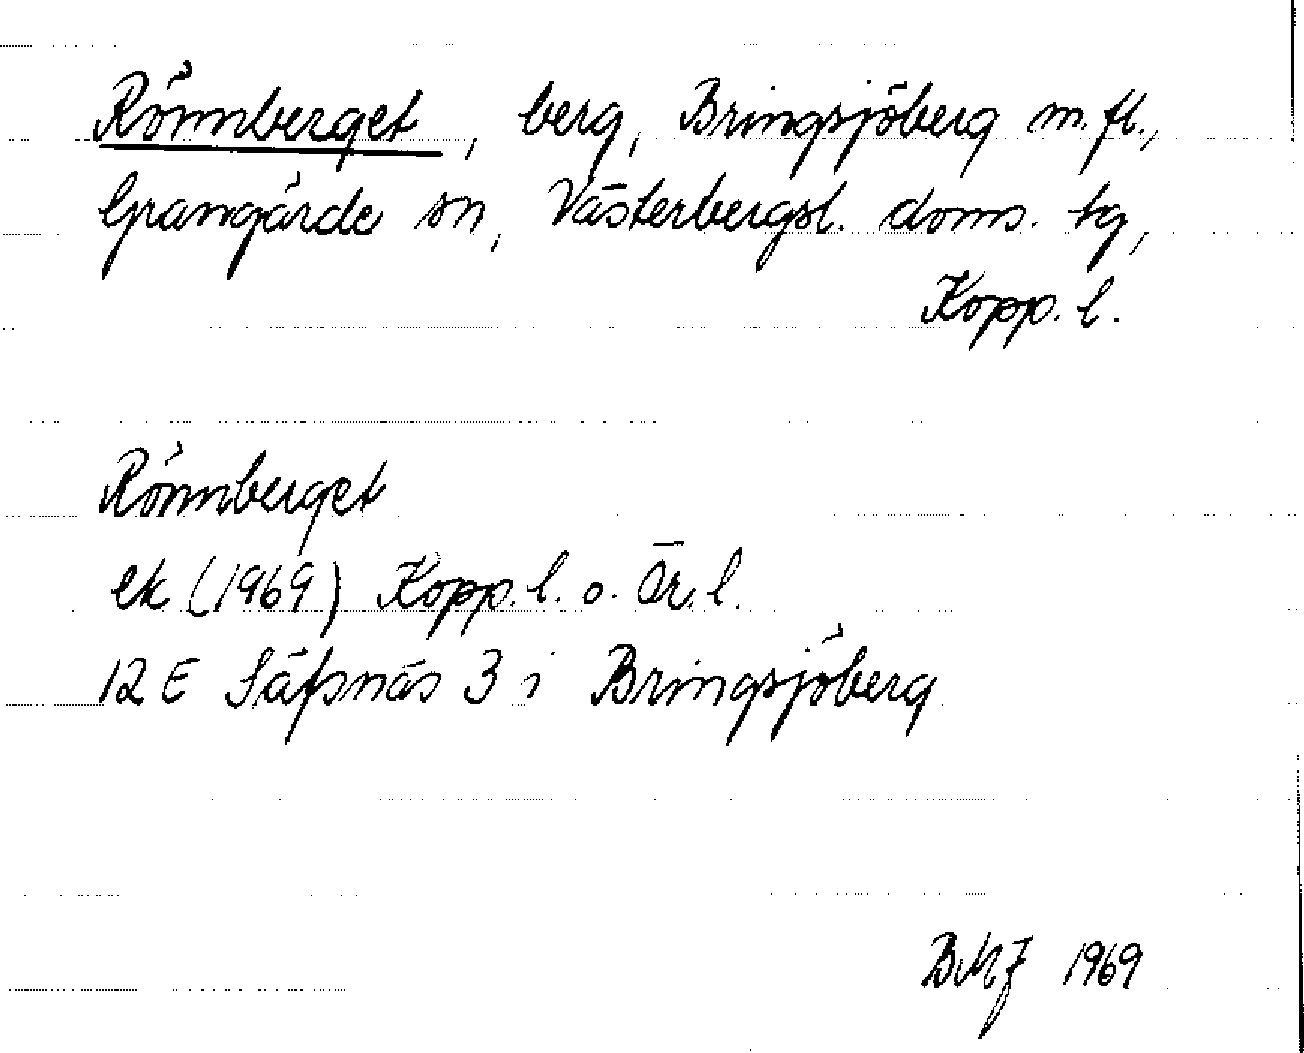 Rönnberget, berg, Bringsjöberg m.fl.,
Grangärde sn, Västerbergsl. doms. tg,
Kopp. l.
Rönnberget
ek (1969) Kopp. l. o. Ör. l.
12 E Säfsnäs 3 i Bringsjöberg
BMJ 1969